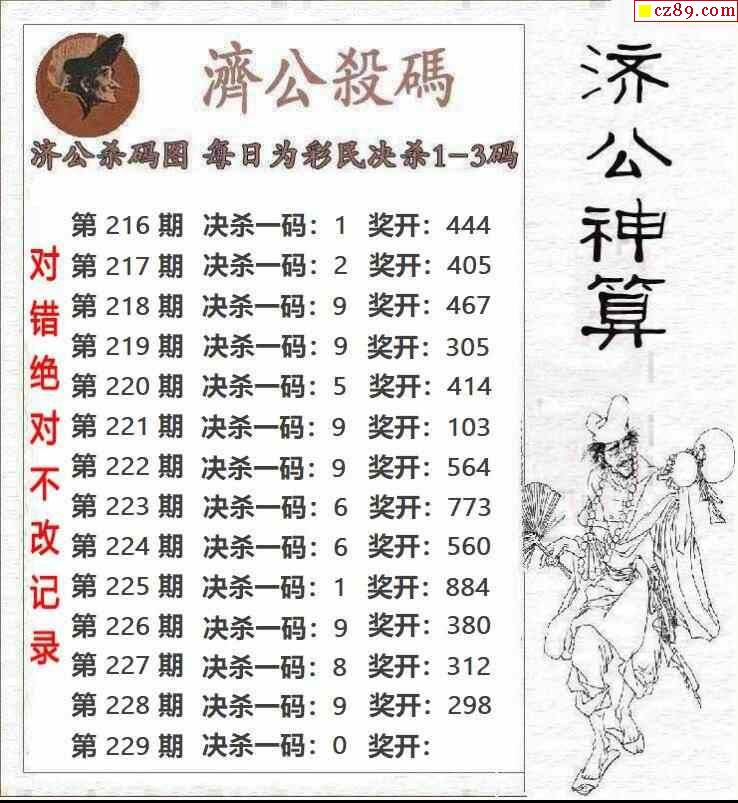 cz89.com
濟公殺碼
济公杀码图 每日为彩民决杀1-3码
第 216 期 决杀一码：1 奖开：444
第 217 期 决杀一码：2 奖开：405
第 218 期 决杀一码：9 奖开：467
第 219 期 决杀一码：9 奖开：305
第 220 期 决杀一码：5 奖开：414
第 221 期 决杀一码：9 奖开：103
第 222 期 决杀一码：9 奖开：564
第 223 期 决杀一码：6 奖开：773
第 224 期 决杀一码：6 奖开：560
第 225 期 决杀一码：1 奖开：884
第 226 期 决杀一码：9 奖开：380
第 227 期 决杀一码：8 奖开：312
第 228 期 决杀一码：9 奖开：298
第 229 期 决杀一码：0 奖开：
对错绝对不改记录
济公神算